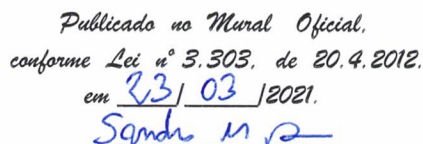 Publicado no Mural Oficial,
conforme Lei nº 3.303, de 20.4.2012.
em 23/ 03 /2021.